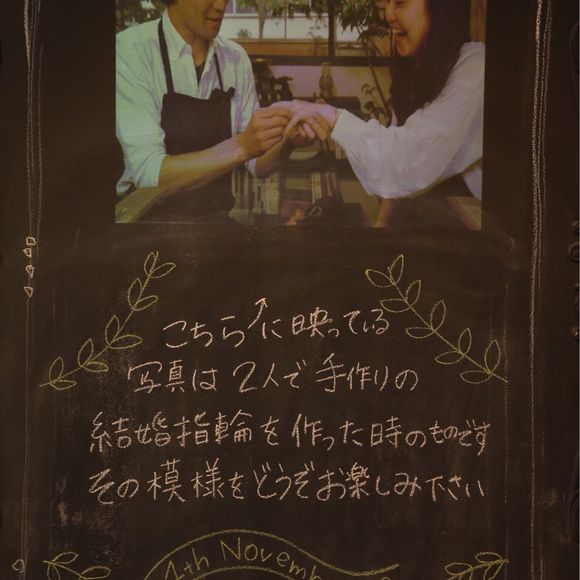 こちら↗に映っている
写真は2人で手作りの
結婚指輪を作った時のものです
その模様をどうぞお楽しみ下さい
4th Novemb